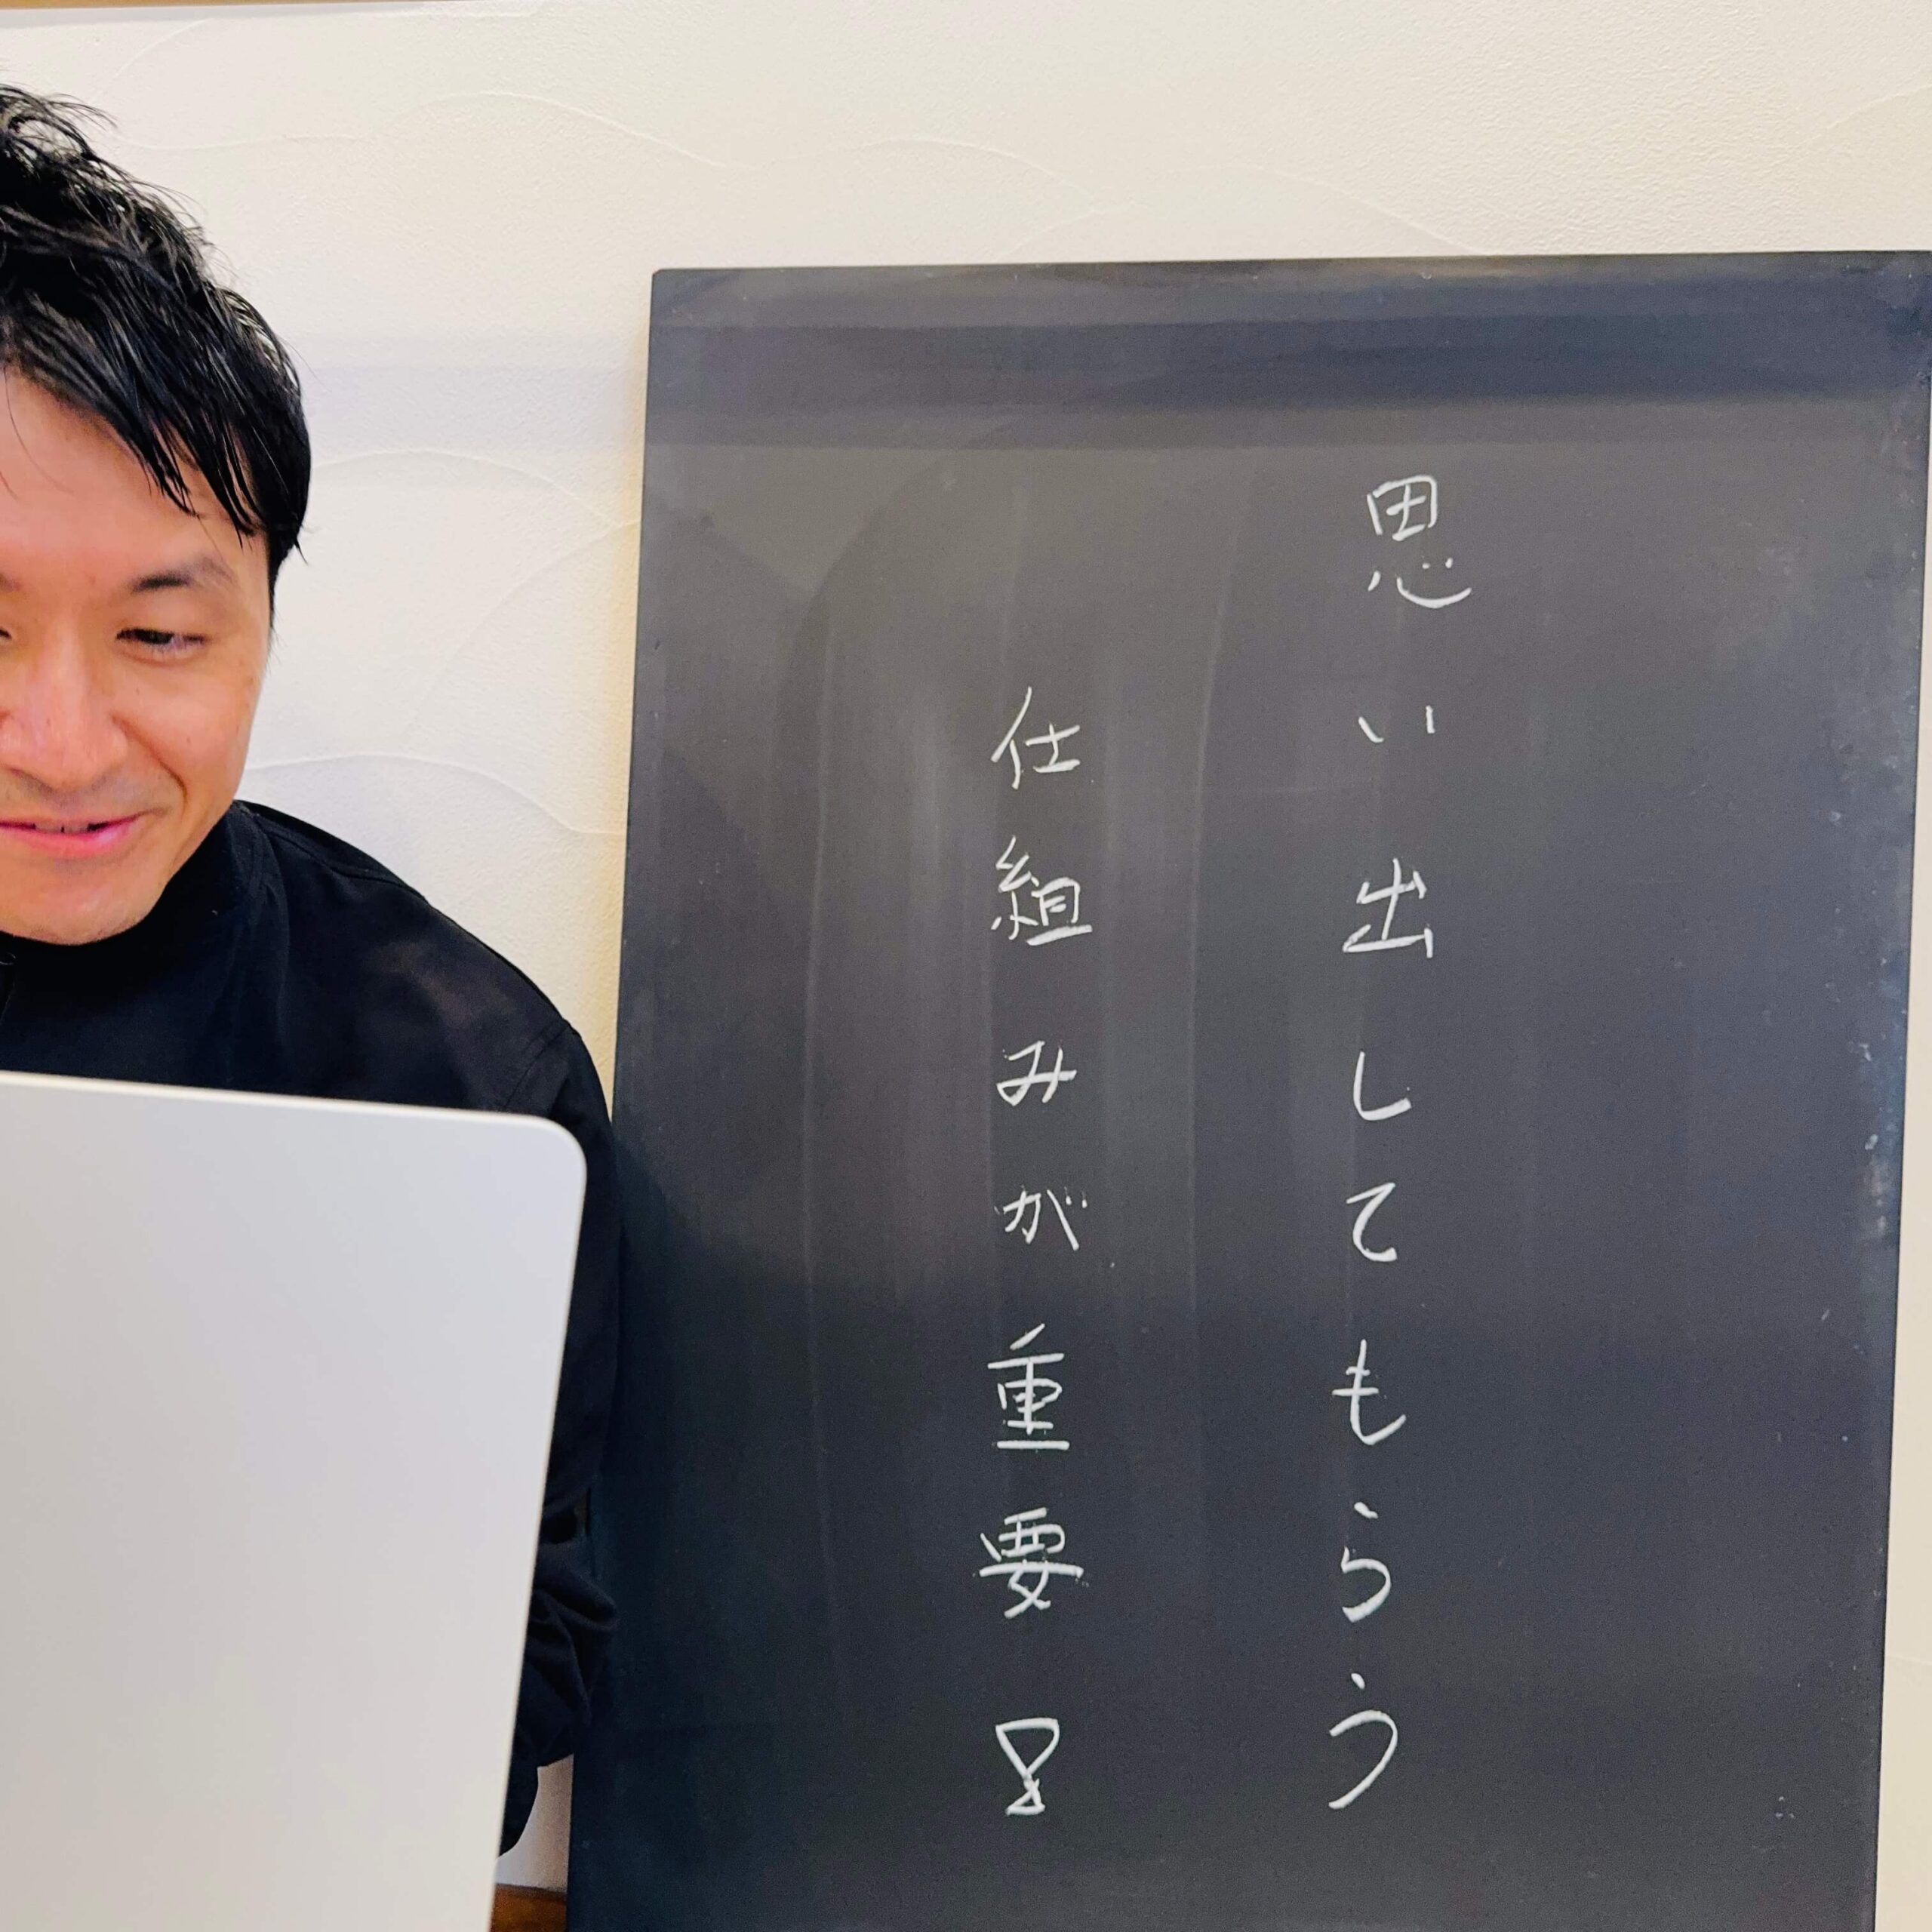 思い出してもらう
仕組みが重要!